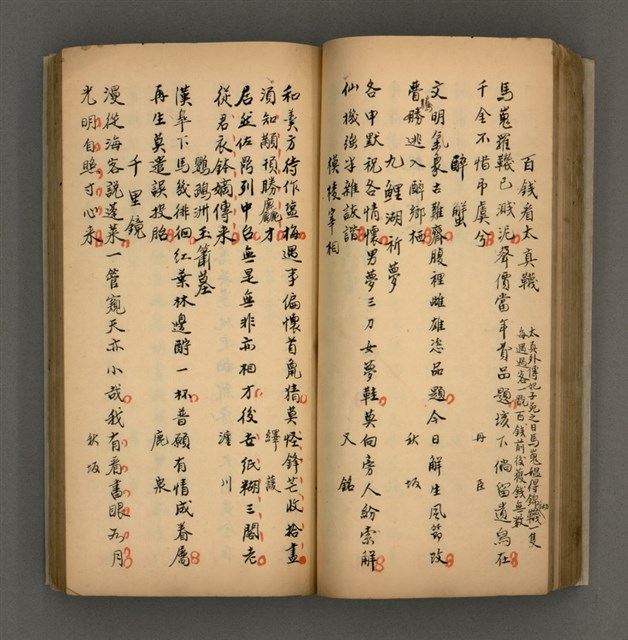 百錢看太真韈
馬嵬羅韈已濺泥聲價當年貴品題垓下倘留遺舄在
千金不惜吊虞兮 丹臣
太真外傳妃子死之日馬嵬媼得錦韈一隻
每遇過客一翫百錢前後獲錢無數
醉蟹
文明氣象古難齊腹裡雌雄恣品題今日解生風節改
曹騰逃入醉鄉栖 秋坂
九鯉湖祈夢
各甲默祝各情懷男夢三刀女夢鞋莫向旁人紛索解
仙機強半雜詼諧 又銘
模稜宰相
和羹方待作鹽梅遇事偏懷首鼠猜莫怪鋒芒收拾盡
須知顢頇勝麤才 繹護
居然伭階列中台無是無非亦相才後世紙糊三閣老
從君衣鉢嫡傳來 滙川
鸚鵡洲玉簫墓
漢皋下馬幾徘徊紅葉林邊酹一杯普願有情成眷屬
再生莫遣誤投胎 鹿泉
千里鏡
漫從海客說蓬萊一管窺天亦小哉我有看書眼如月
光明自照寸心來 秋坂